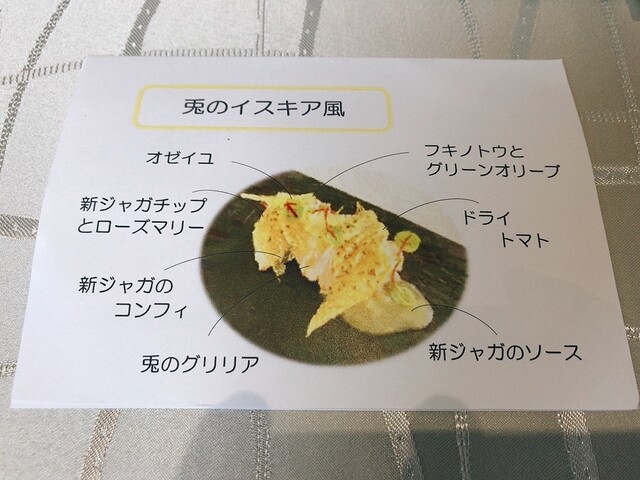 兎のイスキア風
オゼイユ
フキノトウと
グリーンオリーブ
新ジャガチップ
とローズマリー
ドライ
トマト
新ジャガの
コンフィ
兎のグリリア
新ジャガのソース